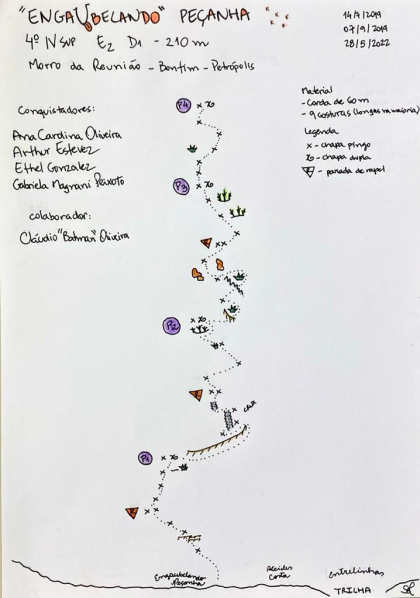 "ENGAUBELANDO" PEÇANHA
4º IV SUP E2 D1 - 210m
Morro da Reunião - Bonfim - Petrópolis
14/7/2019
07/9/2019
28/5/2022
Material
- Corda de 60m
- 9 costuras (longas na maioria)
Legenda
x - chapa pingo
xo - chapa dupla
- parada de rapel
Conquistadores:
Ana Carolina Oliveira
Arthur Estevez
Ethel Gonzalez
Gabriela Magnani Peixoto
colaborador:
Cláudio "Batman" Oliveira
P4
P3
P2
P1
Engaubelando Peçanha
Alcides
Entrelinhas
TRILHA